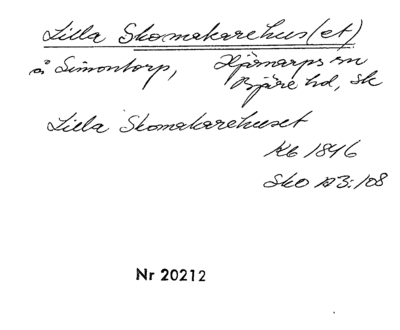 Lilla Skomakarehus(et)
å Simontorp, Hjärnarps sn
Bjäre hd, Sk
Lilla Skomakarehuset
Kb 1846
Sko A3:108
Nr 20212